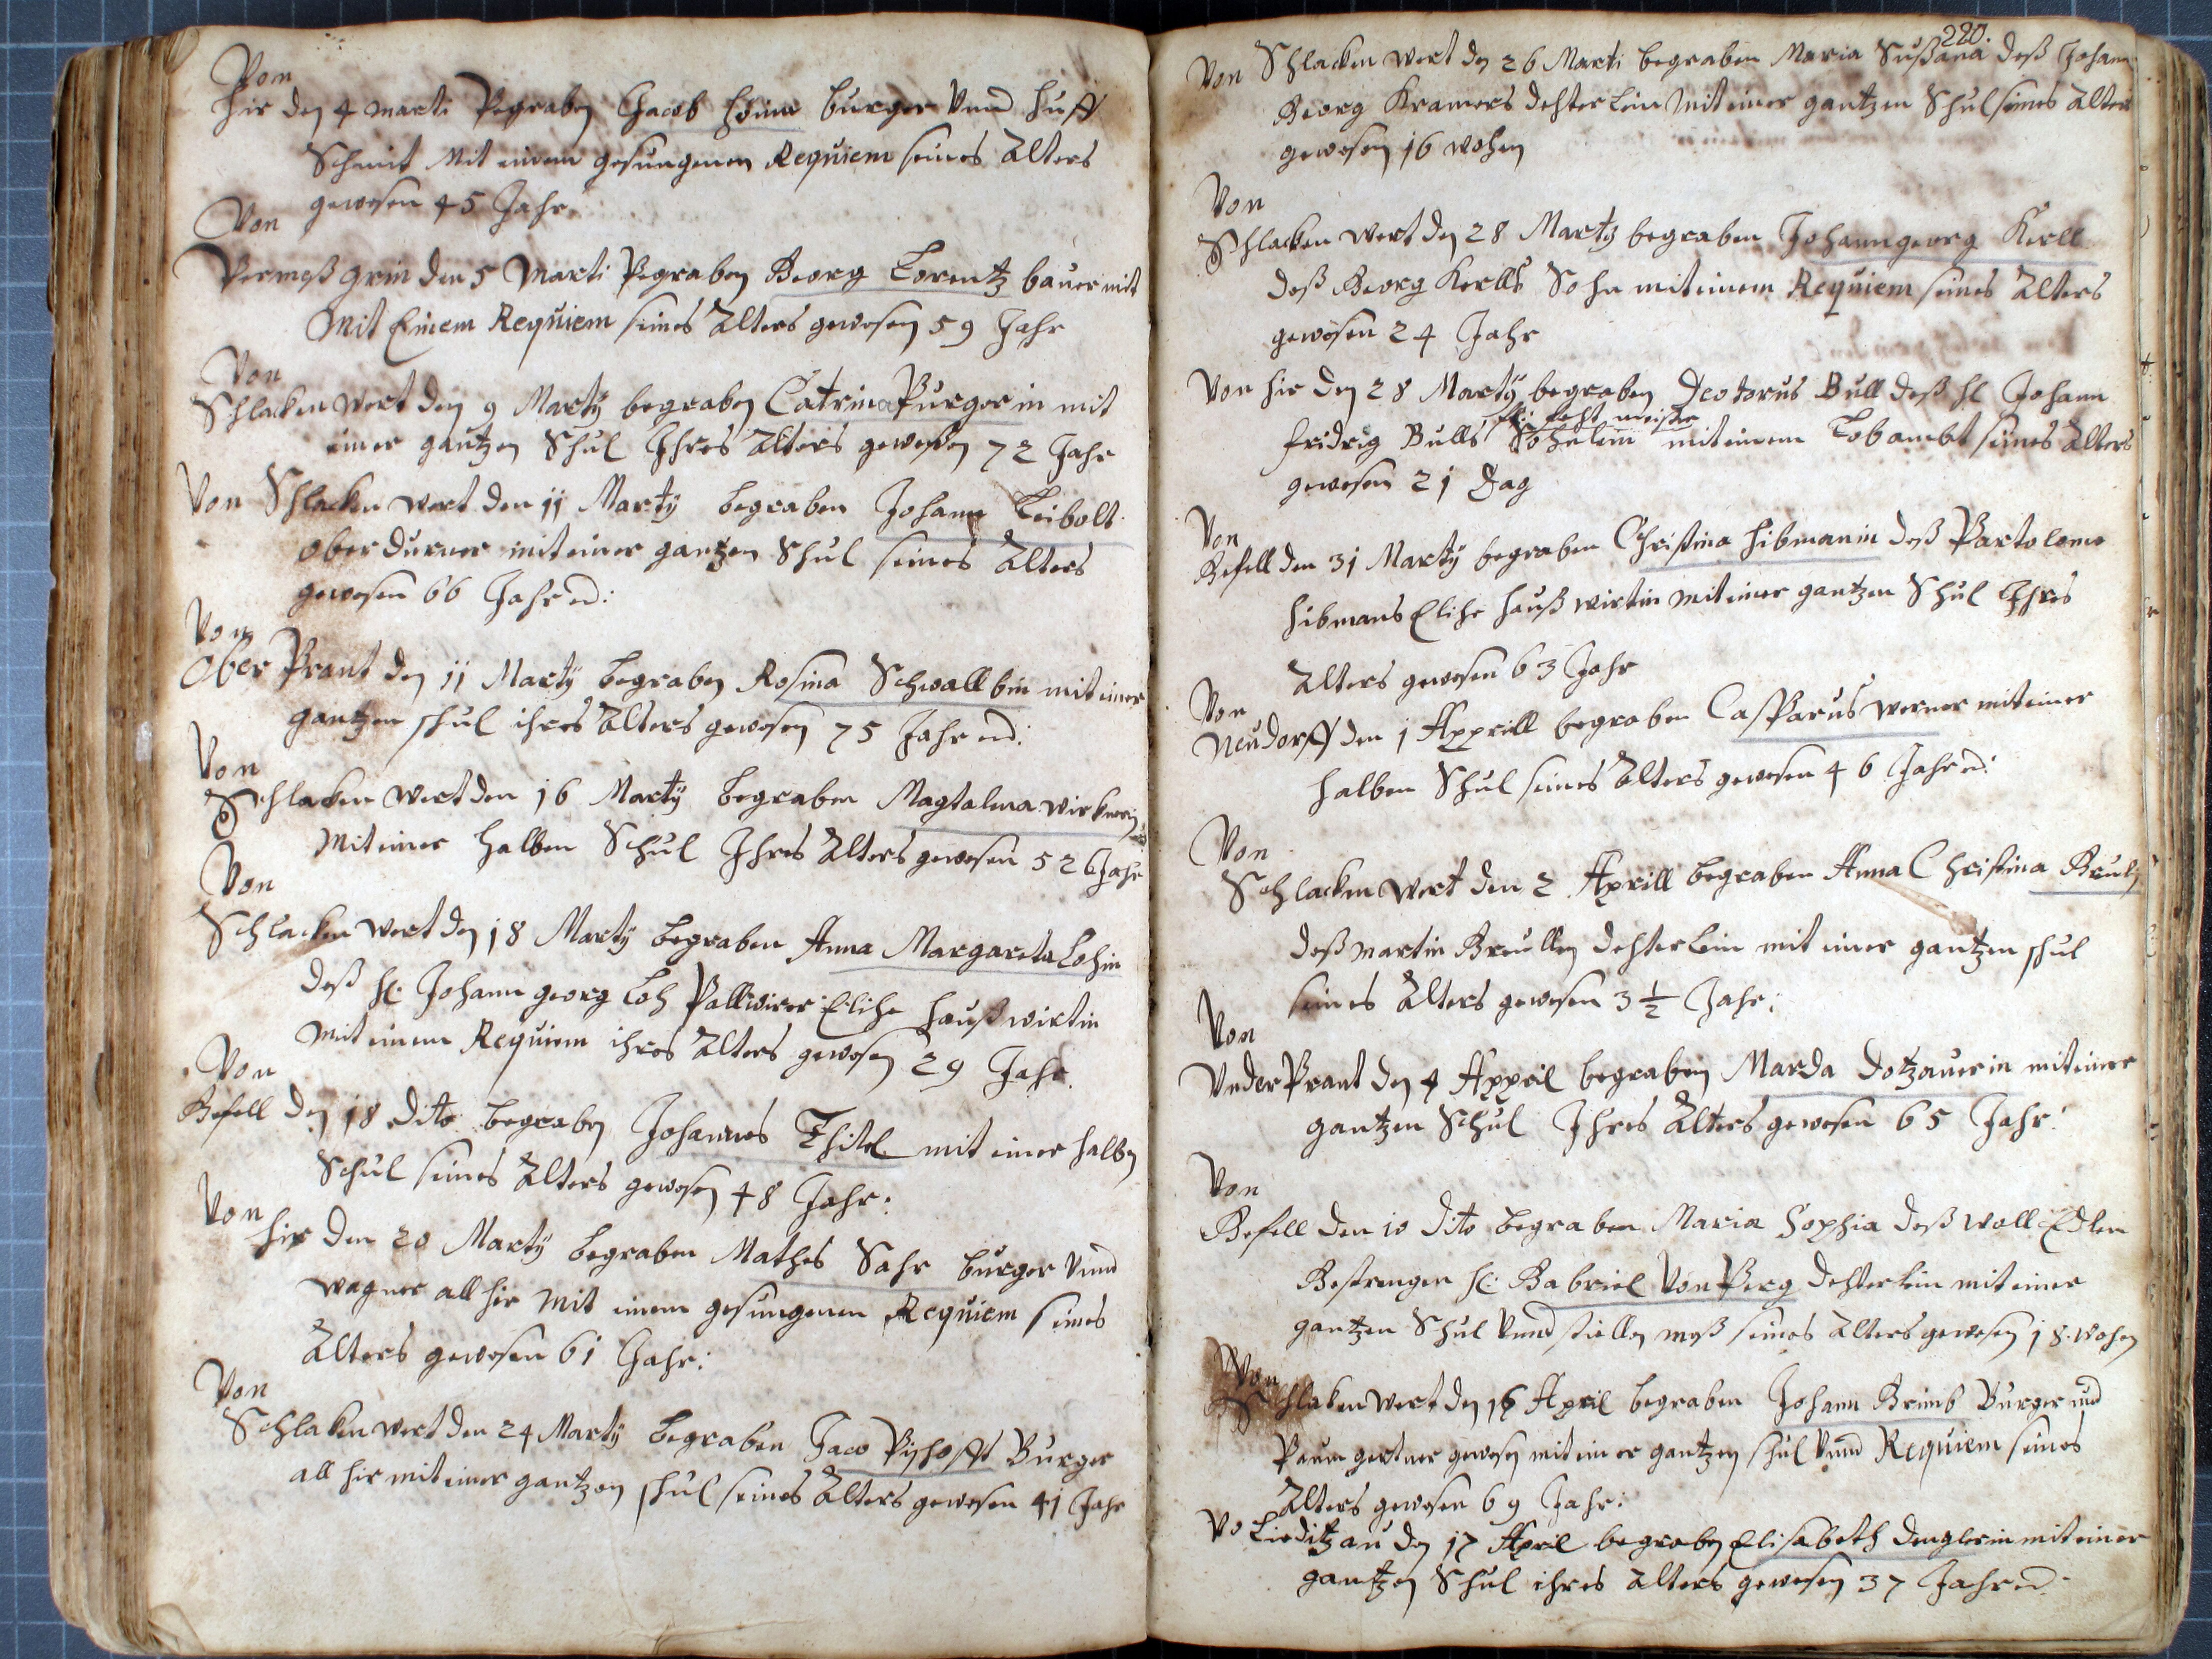 Von
hir den 4 Marti Pegraben Jacob Heinn burger Vnnd huff
Schmit Mit einem gesungenen Requiem seines Alters
gewesen 45 Jahr
Von
Permeßgrin den 5 Marti Pegraben Georg Lorentz bauer mit
Mit Einem Requiem seines Alters gewesen 59 Jahr
Von
Schlacken wert den 9 Martÿ begraben Catrina Purgerin mit
einer gantzen Schul Ihres Alters gewesen 72 Jahr
Von Schlacken wert den 11 Martÿ begraben Johann Leibolt
ober durner mit einer gantzen Schul seines Alters
gewesen 66 Jahr
Von
Ober Prant den 11 Martÿ begraben Rosina Schwallbin mit einer
gantzen schul ihres Alters gewesen 75 Jahr
Von
Schlacken wert den 16 Martÿ begraben Magtalena wirknerin
Mit einer halben Schul Ihres Alters gewesen 52 Jahr
Von
Schlacken wert den 18 Martÿ begraben Anna Margareta Lohin
deß H: Johann georg Loh Palwirer Elihe haußwirtin
mit einem Requiem ihres Alters gewesen 29 Jahr.
Von
Gesell den 18 dito begraben Johannes Thitel mit einer halben
Schul seines Alters gewesen 48 Jahr:
Von
hir den 20 Martÿ begraben Mathes Sahr burger Vnnd
wagner all hir Mit einem gesungenen Requiem seines
Alters gewesen 61 Jahr:
Von
Schlaken wert den 24 Martÿ begraben Jaco Pischofft Burger
all hir mit einer gantzen schul seines Alters gewesen 41 Jahr
220.
Von Schlacken wert den 26 Marti begraben Maria Sußana deß Johann
Georg Kramers dehterlein Mit einer gantzen Schul seines Alters
gewesen 16 wohen
Von
Schlacken wert den 28 Martÿ begraben Johann georg Kerll
deß Georg Kerlls Sohn mit einem Requiem seines Alters
gewesen 24 Jahr
Von hir den 28 Martÿ begraben Deodorus Bull deß H: Johann
fridrig Bulls Söhnlein mit einem Lobambt seines Alters
gewesen 21 Dag
Von
Gesell den 31 Martÿ begraben Christina Hibmanin deß Partolome
Hibmans Elihe hauß wirtin mit einer gantzen Schul Ihres
Alters gewesen 63 Jahr
Von
Neudorff den 1 Apprill begraben Casparus Werner mit einer
halben Schul seines Alters gewesen 46 Jahr
Von
Schlacken wert den 2 Aprill begraben Anna Christina
deß Martin Breullen dehterlein mit einer gantzen schul
seines Alters gewesen 3 1/2 Jahr:
Von
Vnder Prant den 4 Appril begraben Marda Dotzauerin mit einer
gantzen Schul Ihres Alters gewesen 65 Jahr:
Von
Gesell den 10 dito begraben Maria Sophia deß woll Edlen
Gestrengen H: Gabriel Von Perg dehterlein mit einer
gantzen Schul Vnnd stillen meß seines Alters gewesen 18 wohen
Von
Schlaken wert den 16 April begraben Johann Grimb Burger und
Paum gertner gewesen mit einer gantzen schul Vnnd Requiem seines
Alters gewesen 69 Jahr:
Vo Lieditzau den 17 April begraben Elisabeth Denglerin mit einer
gantzen Schul ihres Alters gewesen 37 Jahr